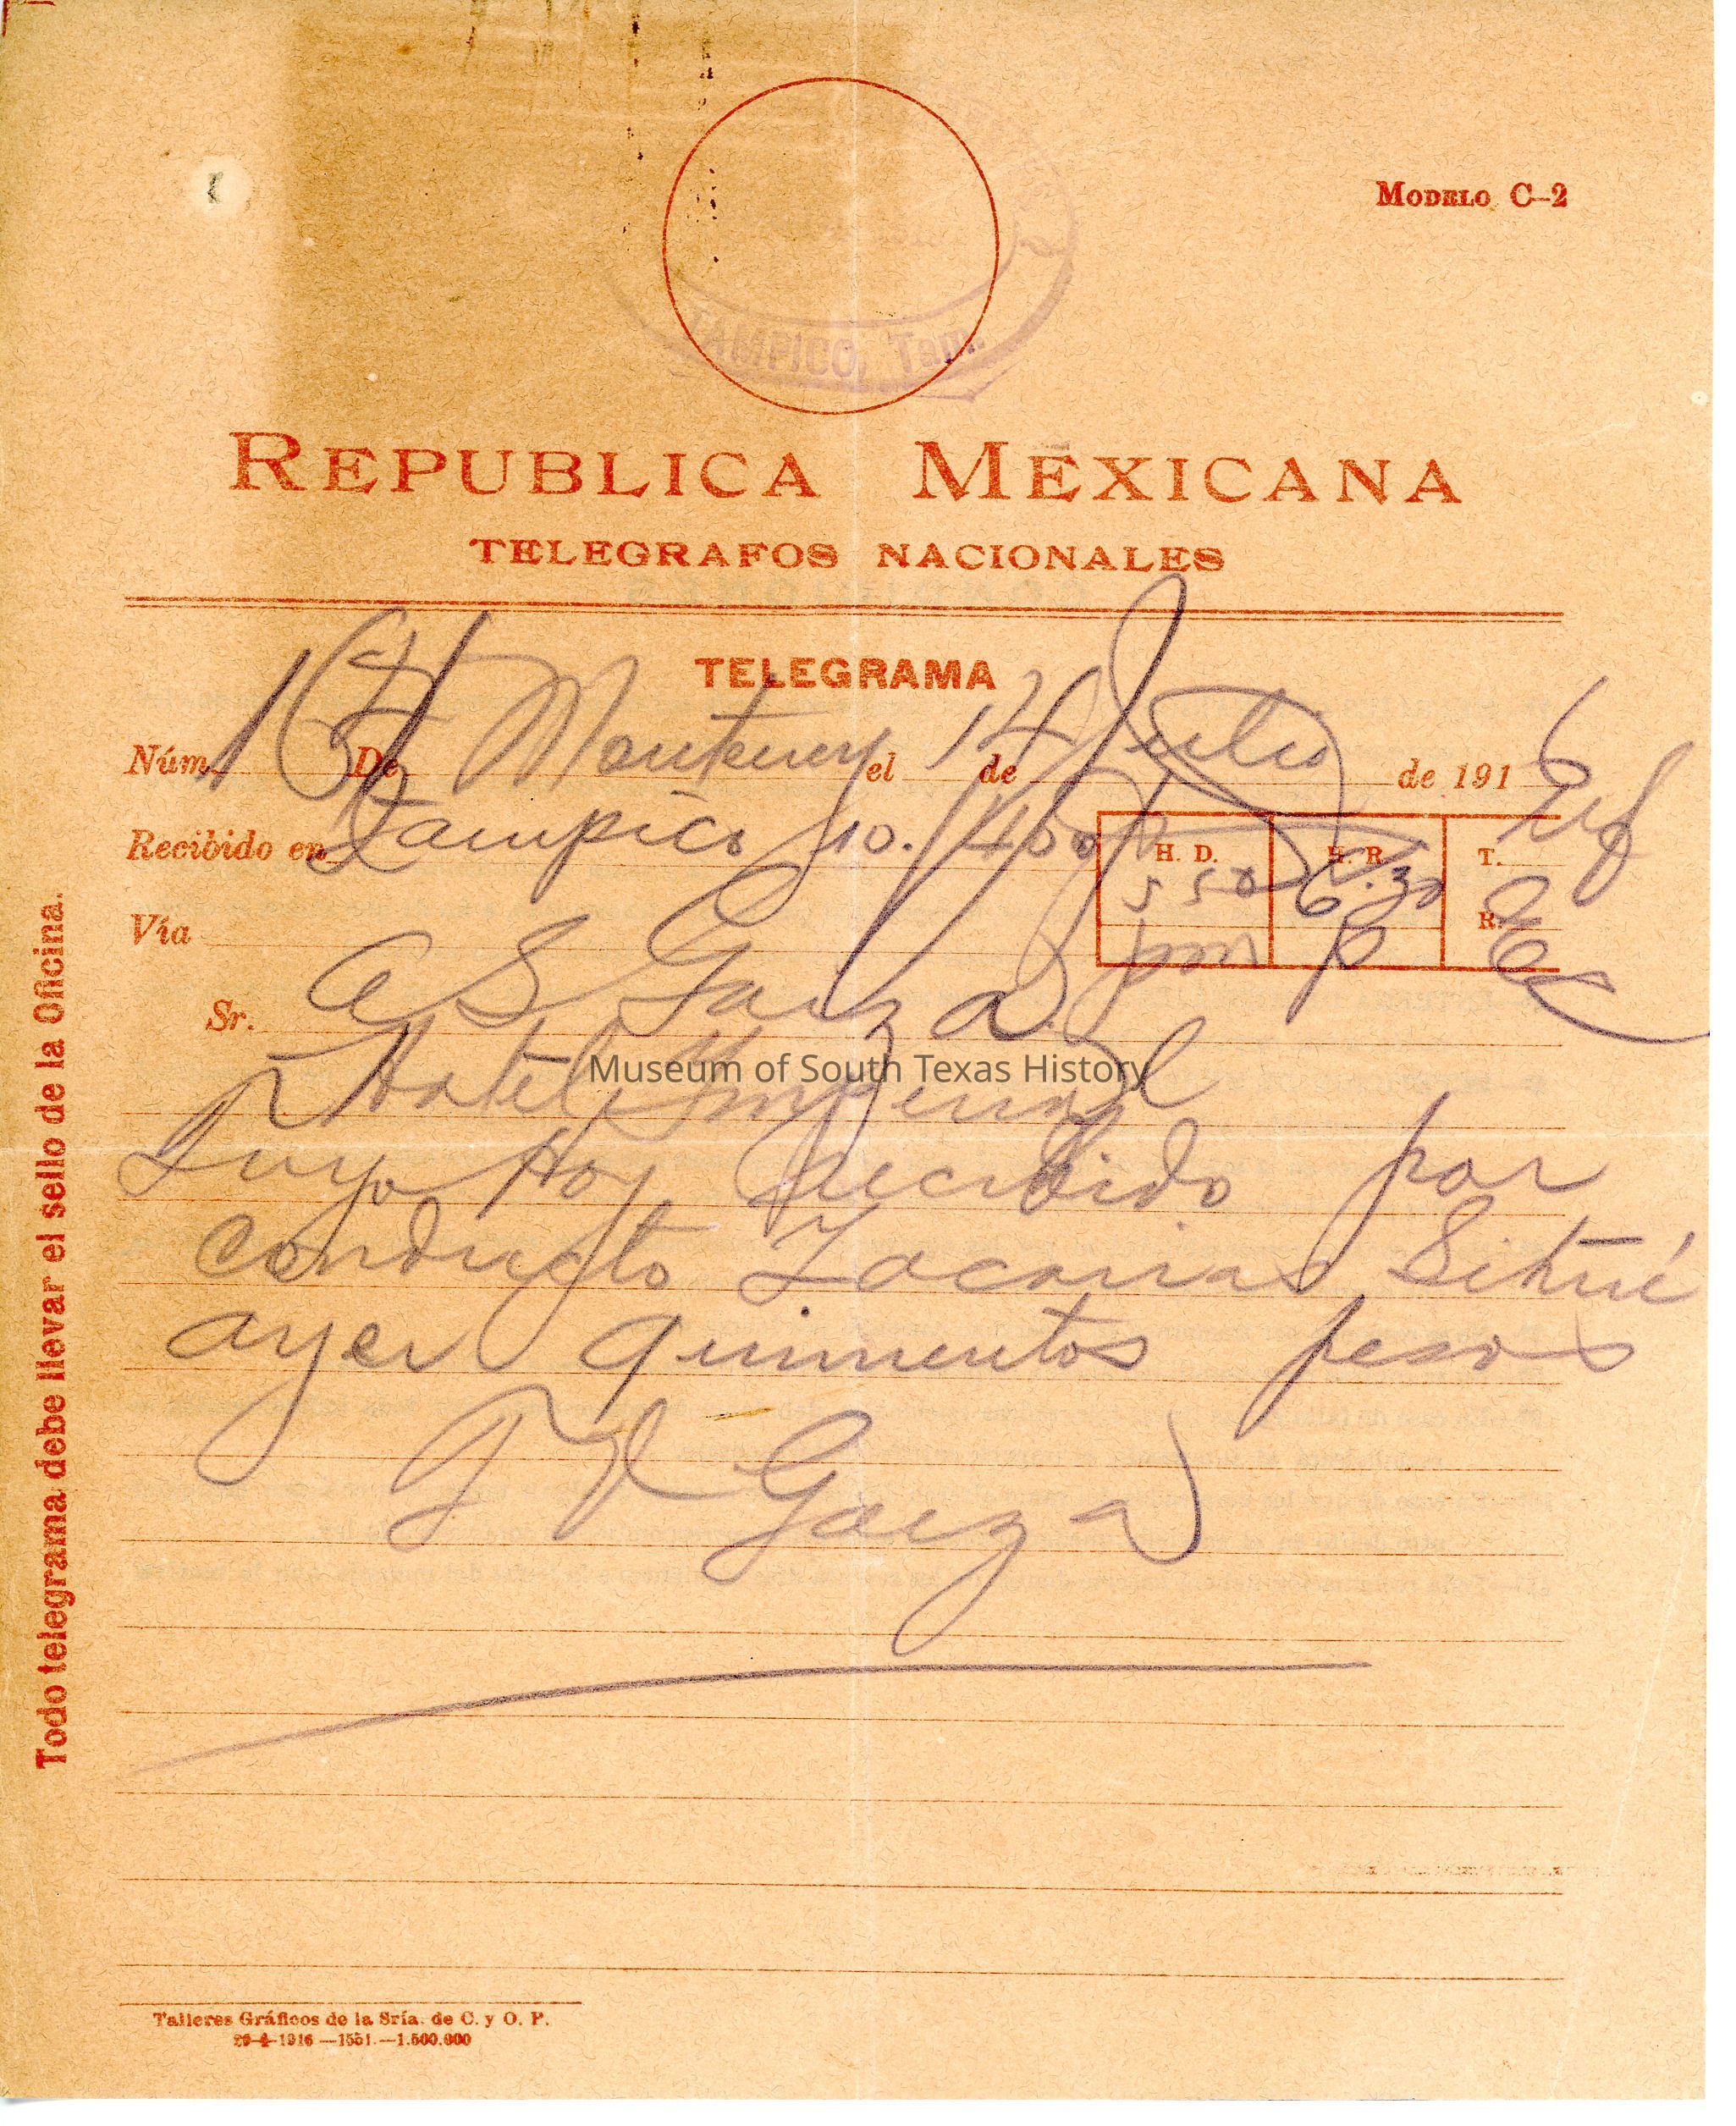 MODELO C-2
TAMPICO, Tam.
REPUBLICA MEXICANA
TELEGRAFOS NACIONALES
TELEGRAMA
Núm. De Monterrey el 14 de Julio de 1916
Recibido en Tampico 10.
H. D. H. R. T.
550 6.30
Vía R.
pm p
Sr. A S Garza
Hotel Imperial
Museum of South Texas History
Suyo Hoy Recibido por
conducto Zacarias
ayer quinientos pesos
T V Garza
Todo telegrama debe llevar el sello de la Oficina.
Talleres Gráficos de la Sría. de C. y O. P.
29-4-1916 —1551.—1.500.000